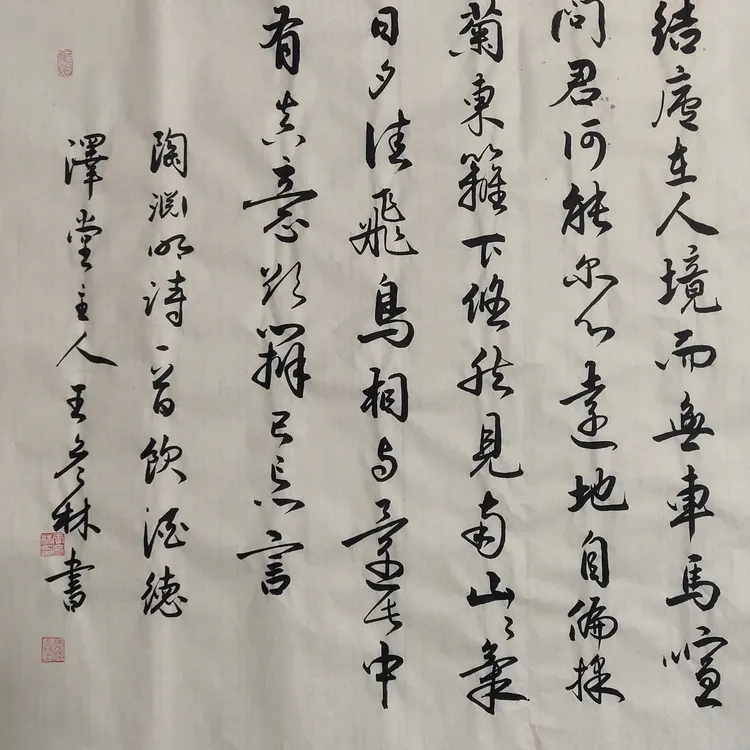 結廬在人境而無車馬喧
問君何能尔心遠地自偏採
菊東籬下悠然見南山々氣
日夕佳飛鳥相与還此中
有真意欲辯已忘言
陶淵明詩一首飲酒德
澤堂主人王彥林書